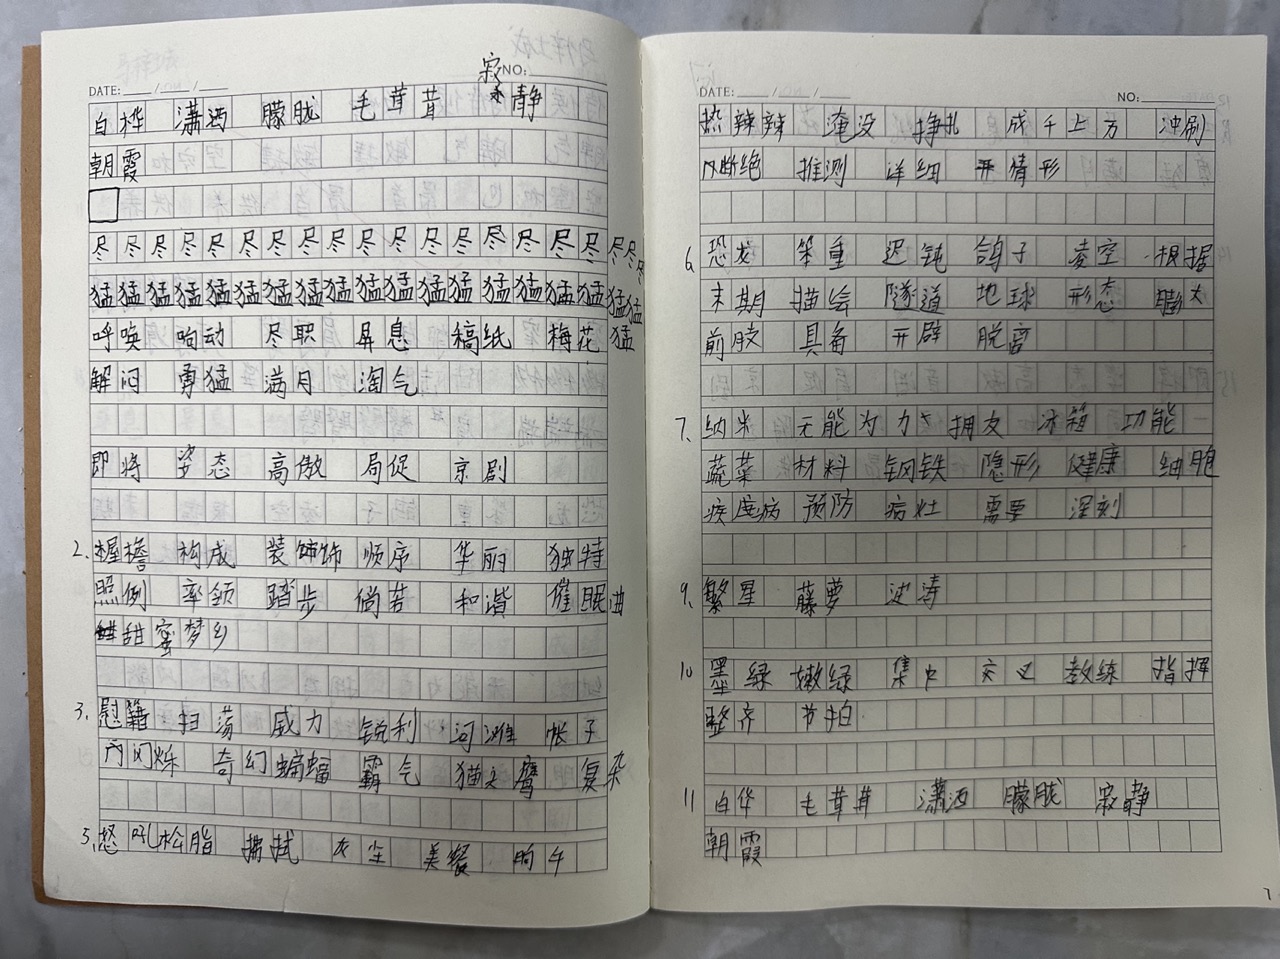 DATE: ___/___/___
NO:
白桦 潇洒 朦胧 毛茸茸 寂静
朝霞
尽尽尽尽尽尽尽尽尽尽尽尽尽尽尽尽尽尽尽尽
猛猛猛猛猛猛猛猛猛猛猛猛猛猛猛猛猛猛猛
呼唤 响动 尽职 屏息 稿纸 梅花 猛
解闷 勇猛 满月 淘气
即将 姿态 高傲 局促 京剧
2、屋檐 构成 装饰 顺序 华丽 独特
照例 率领 踏步 倘若 和谐 催眠曲
甜蜜 梦乡
3、慰籍 扫荡 威力 锐利 河滩 帐子
闪烁 奇幻 蝙蝠 霸气 猫头鹰 复杂
5、怒吼 松脂 拂拭 灰尘 美餐 晌午
DATE: ___/___/___
NO:
热辣辣 淹没 挣扎 成千上万 冲刷
断绝 推测 详细 情形
6、恐龙 笨重 迟钝 鸽子 凌空 根据
末期 描绘 隧道 地球 形态 膨大
前肢 具备 开辟 脱离
7、纳米 无能为力 拥友 冰箱 功能
蔬菜 材料 钢铁 隐形 健康 细胞
疾病 预防 病灶 需要 深刻
9、繁星 藤萝 波涛
10 墨绿 嫩绿 集中 交叉 教练 指挥
整齐 节拍
11 白华 毛茸茸 潇洒 朦胧 寂静
朝霞